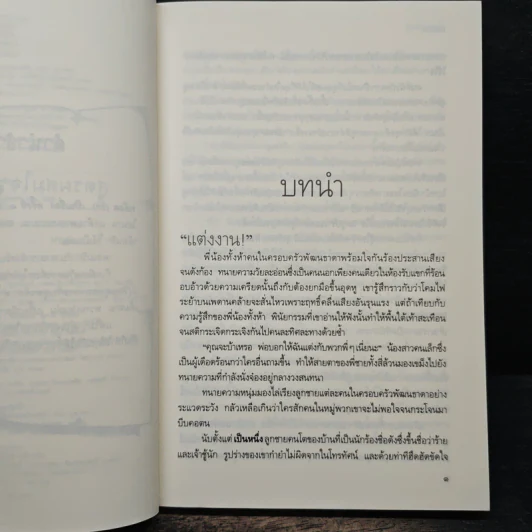 บทนำ
“แต่งงาน!”
พี่น้องทั้งห้าคนในครอบครัวพัฒนธาดาพร้อมใจกันร้องประสานเสียง
จนดังก้อง ทนายความวัยละอ่อนซึ่งเป็นคนนอกเพียงคนเดียวในห้องรับแขกที่ร้อน
อบอ้าวด้วยความเครียดนั้นถึงกับต้องยกมือขึ้นอุดหู เขารู้สึกราวกับว่าโคมไฟ
ระย้าบนเพดานคล้ายจะสั่นไหวเพราะฤทธิ์คลื่นเสียงอันรุนแรง แต่ถ้าเทียบกับ
ความรู้สึกของพี่น้องทั้งห้า พินัยกรรมที่เขาอ่านให้ฟังนั้นทำให้พื้นใต้เท้าสะเทือน
จนสติกระเจิดกระเจิงกันไปคนละทิศละทางด้วยซ้ำ
“คุณจะบ้าเหรอ พ่อบอกให้ฉันแต่งกับพวกพี่ๆ เนี่ยนะ” น้องสาวคนเล็กซึ่ง
เป็นผู้เดือดร้อนกว่าใครอื่นถามขึ้น ทำให้สายตาของพี่ชายทั้งสี่ล้วนมองเขม็งไปยัง
ทนายความที่กำลังนั่งจ๋องอยู่กลางวงสนทนา
ทนายความหนุ่มมองไล่เรียงลูกชายแต่ละคนในครอบครัวพัฒนธาดาอย่าง
ระแวดระวัง กลัวเหลือเกินว่าใครสักคนในหมู่พวกเขาจะไม่พอใจจนกระโจนมา
บีบคอตน
นับตั้งแต่ เป็นหนึ่ง ลูกชายคนโตของบ้านที่เป็นนักร้องชื่อดังซึ่งขึ้นชื่อว่าร้าย
และเจ้าชู้นัก รูปร่างของเขากำยำไม่ผิดจากในโทรทัศน์ และด้วยท่าทีฮึดฮัดขัดใจ